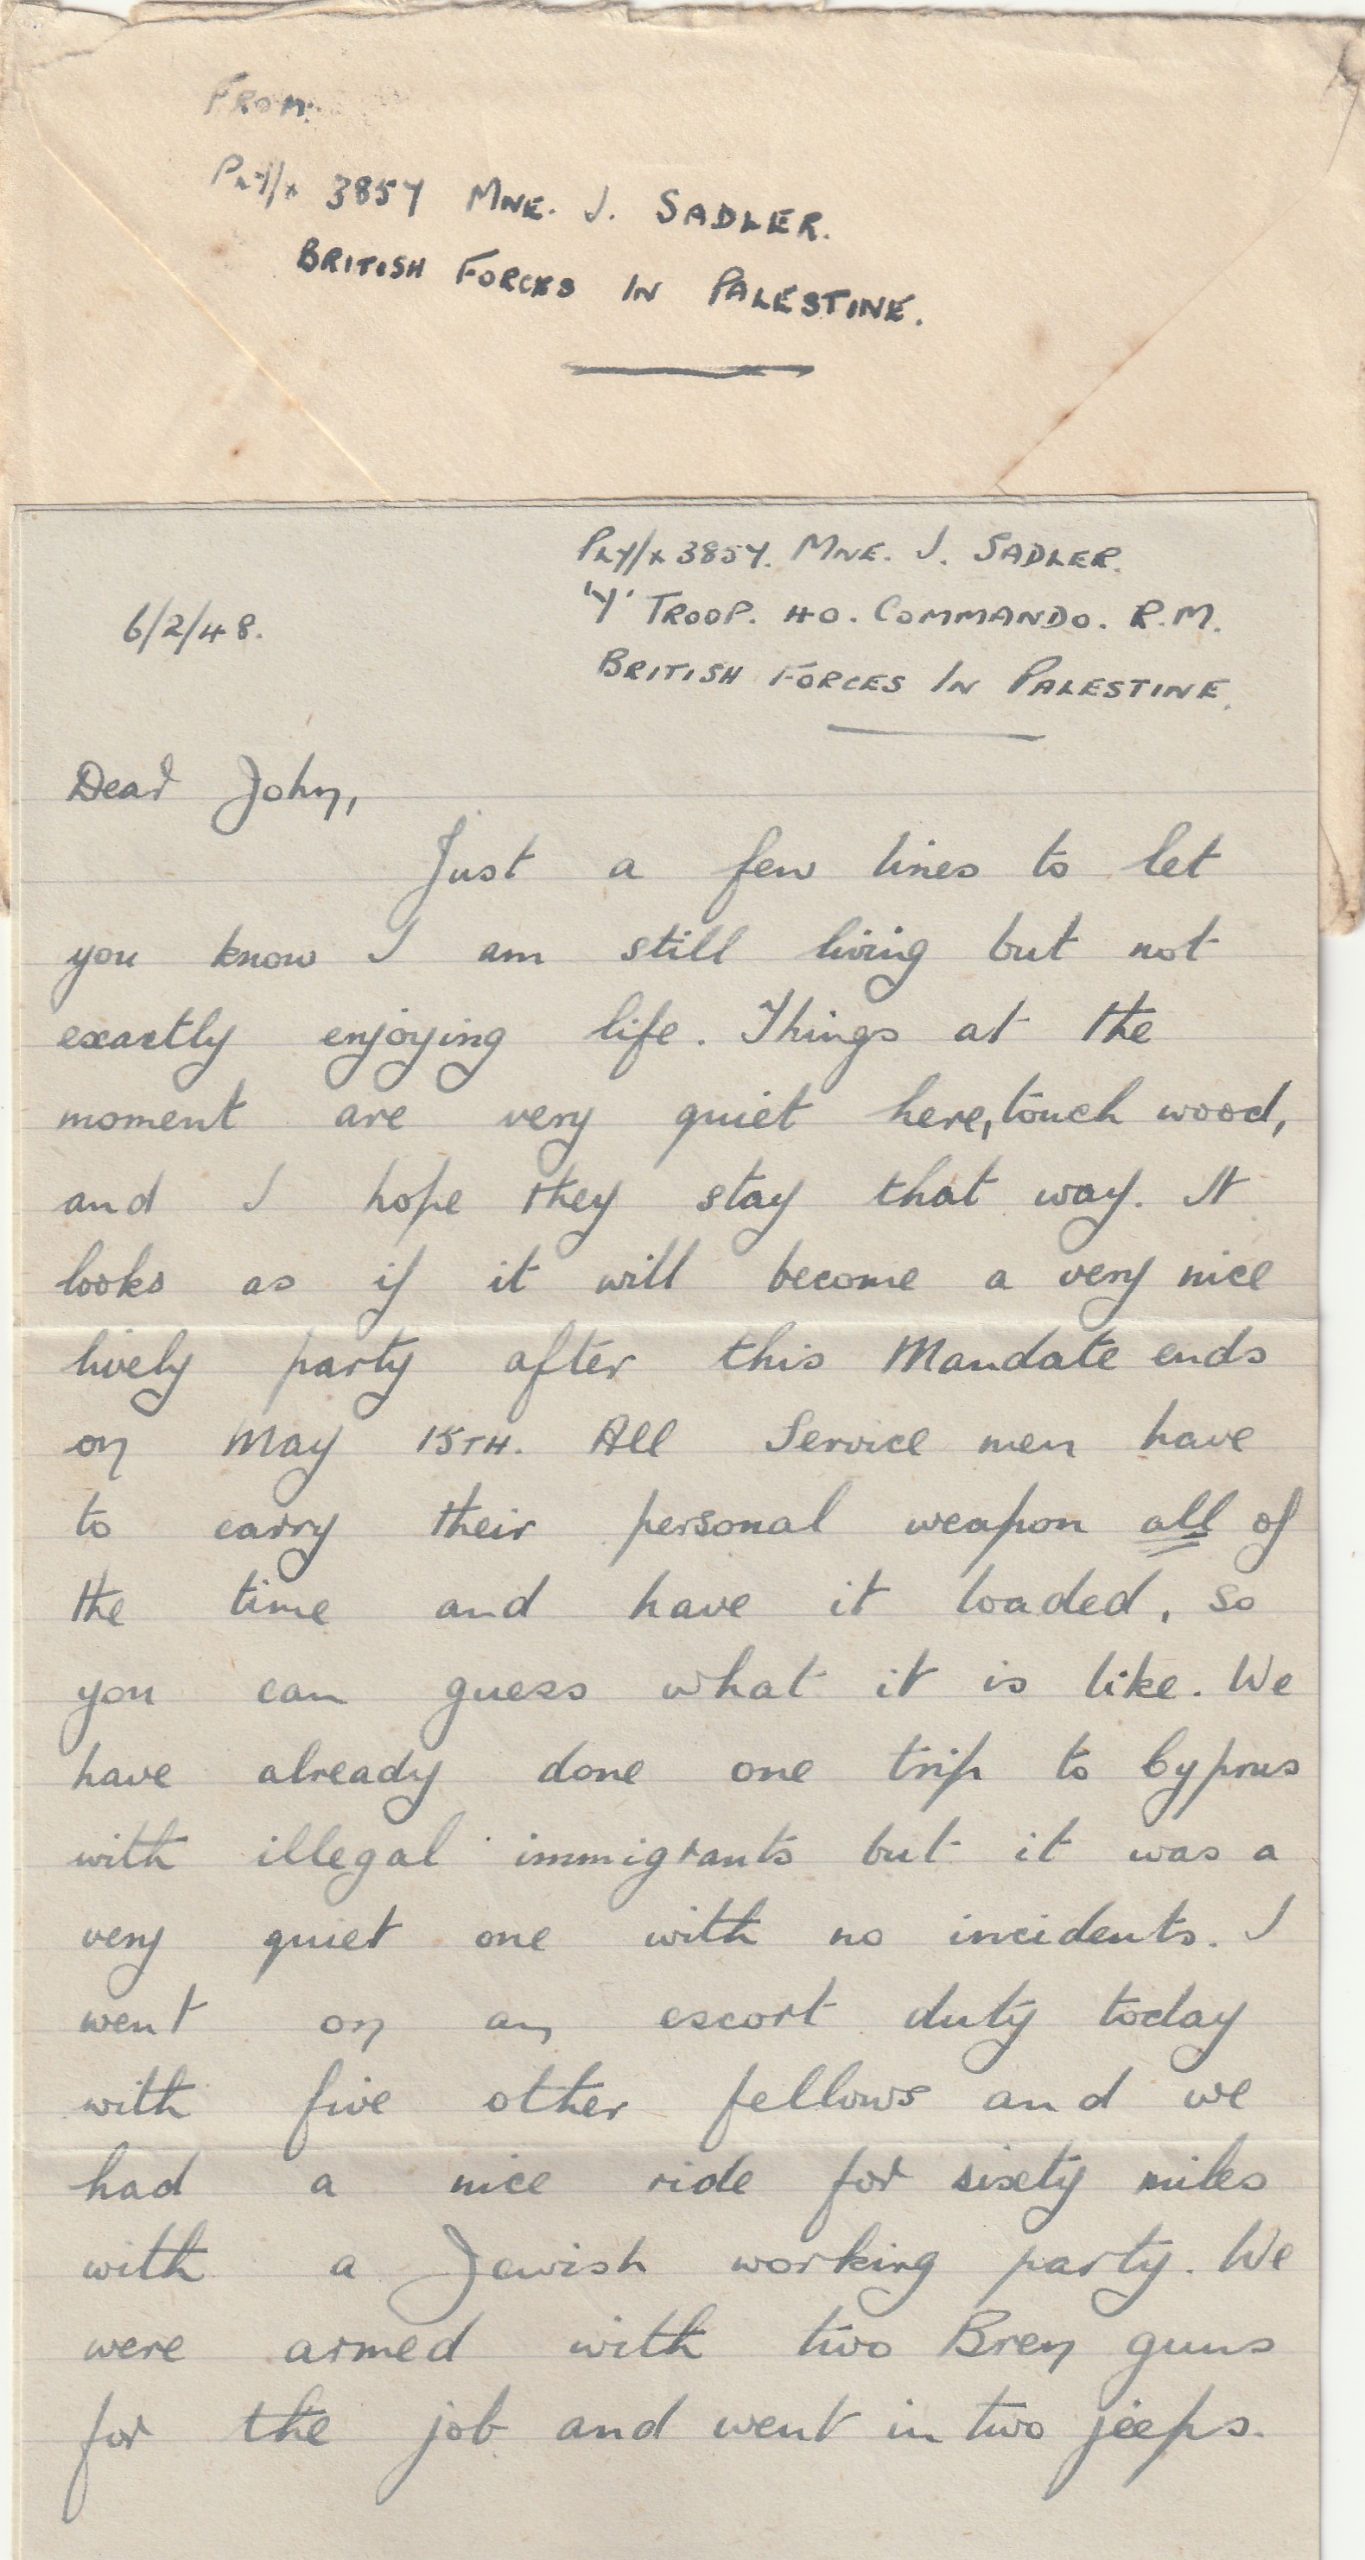 FROM:
PLY/X 3857 MNE. J. SADLER.
BRITISH FORCES IN PALESTINE.
PLY/X 3857. MNE. J. SADLER.
'Y' TROOP. 40. COMMANDO. R.M.
6/2/48.
BRITISH FORCES IN PALESTINE.
Dear John,
Just a few lines to let
you know I am still living but not
exactly enjoying life. Things at the
moment are very quiet here, touch wood,
and I hope they stay that way. It
looks as if it will become a very nice
lively party after this Mandate ends
on May 15TH. All Service men have
to carry their personal weapon all of
the time and have it loaded, so
you can guess what it is like. We
have already done one trip to Cyprus
with illegal immigrants but it was a
very quiet one with no incidents. I
went on an escort duty today
with five other fellows and we
had a nice ride for sixety miles
with a Jewish working party. We
were armed with two Bren guns
for the job and went in two jeeps.